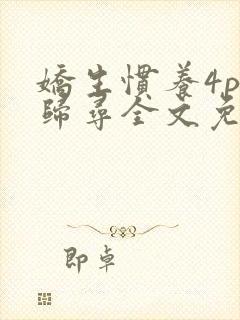 嬌生慣養4p
歸尋全文免
即卓